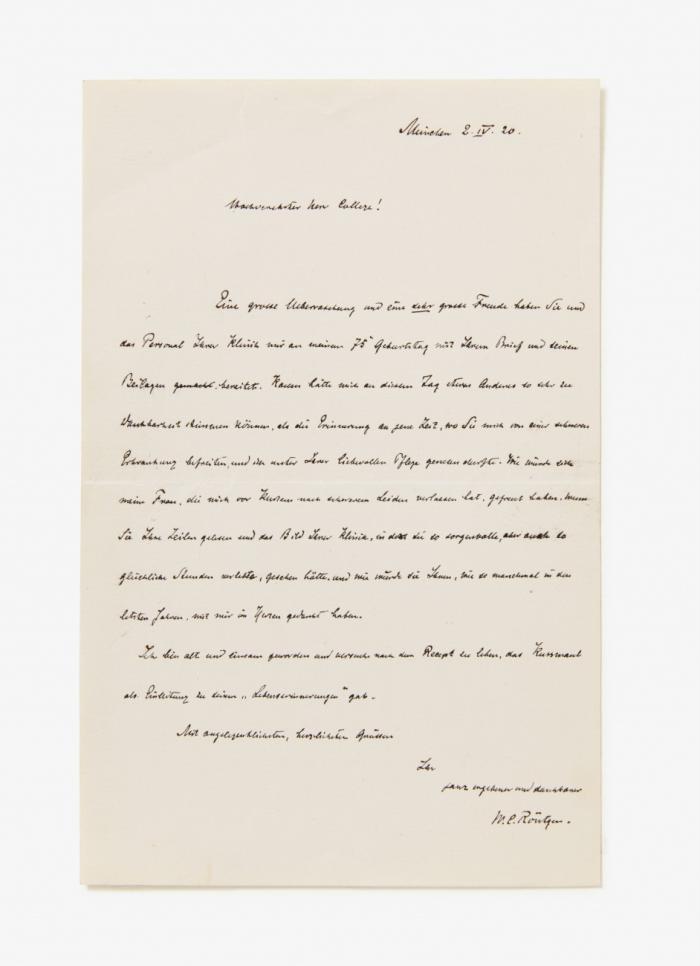 München 2. IV. 20.
Hochverehrter Herr College!
Eine grosse Ueberraschung und eine sehr grosse Freude haben Sie und
das Personal Ihrer Klinik mir an meinem 75. Geburtstag mit Ihrem Brief und seinen
Beilagen gemacht. bereitet. Kaum hätte mich an diesem Tag etwas Anderes so sehr zu
Dankbarkeit stimmen können, als die Erinnerung an jene Zeit, wo Sie mich von einer schweren
Erkrankung befreiten, und ich unter Ihrer liebevollen Pflege genesen durfte. Wie würde sich
meine Frau, die mich vor Kurzem nach schwerem Leiden verlassen hat, gefreut haben, wenn
Sie Ihre Zeilen gelesen und das Bild Ihrer Klinik, in der sie so sorgenvolle, aber auch so
glückliche Stunden verlebte, gesehen hätte. und wie würde sie Ihnen, wie so manchmal in den
letzten Jahren, mit mir im Herzen gedankt haben.
Ich bin alt und einsam geworden und versuche nach dem Recept zu leben, das Kussmaul
als Einleitung zu seinen „Lebenserinnerungen" gab.
Mit angelegentlichsten, herzlichsten Grüssen
Ihr
ganz ergebener und dankbarer
W. C. Röntgen.